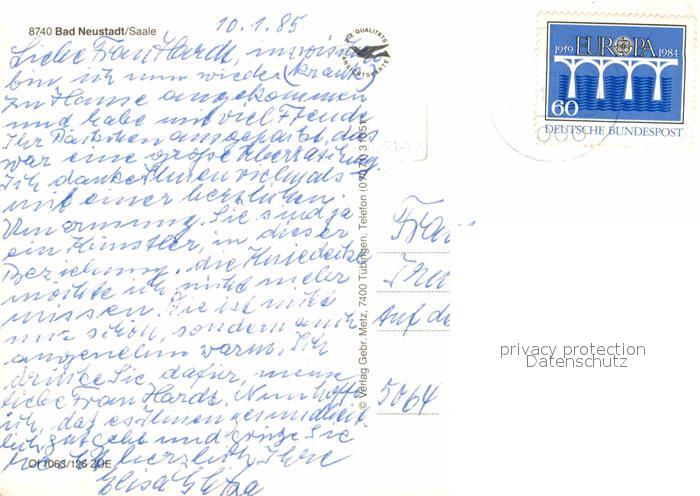 8740 Bad Neustadt/Saale
10.1.85
Liebe Frau Hardt, inzwischen
bin ich nun wieder (krank)
zu Hause angekommen
und habe mit viel Freude
Ihr Päckchen ausgepackt, das
war eine große Überraschung.
Ich danke Ihnen nochmals
mit einer herzlichen
Umarmung. Sie sind ja
ein Künstler, in dieser
Beziehung. die Kniedecke
möchte ich nicht mehr
missen. Sie ist nicht
nur schön, sondern auch
angenehm warm. Ich
drücke Sie dafür, meine
liebe Frau Hardt. Nun hoffe
ich, daß es Ihnen gesundheit-
lich gut geht und grüße Sie
herzlich Ihre
Elisa
Ol 1063/126 ZÜE
DIE QUALITÄTS
ANSICHTSKARTE
© Verlag Gebr. Metz, 7400 Tübingen, Telefon (07071)
1959 EUROPA 1984
60
DEUTSCHE BUNDESPOST
Frau
Auf de
5064
privacy protection
Datenschutz